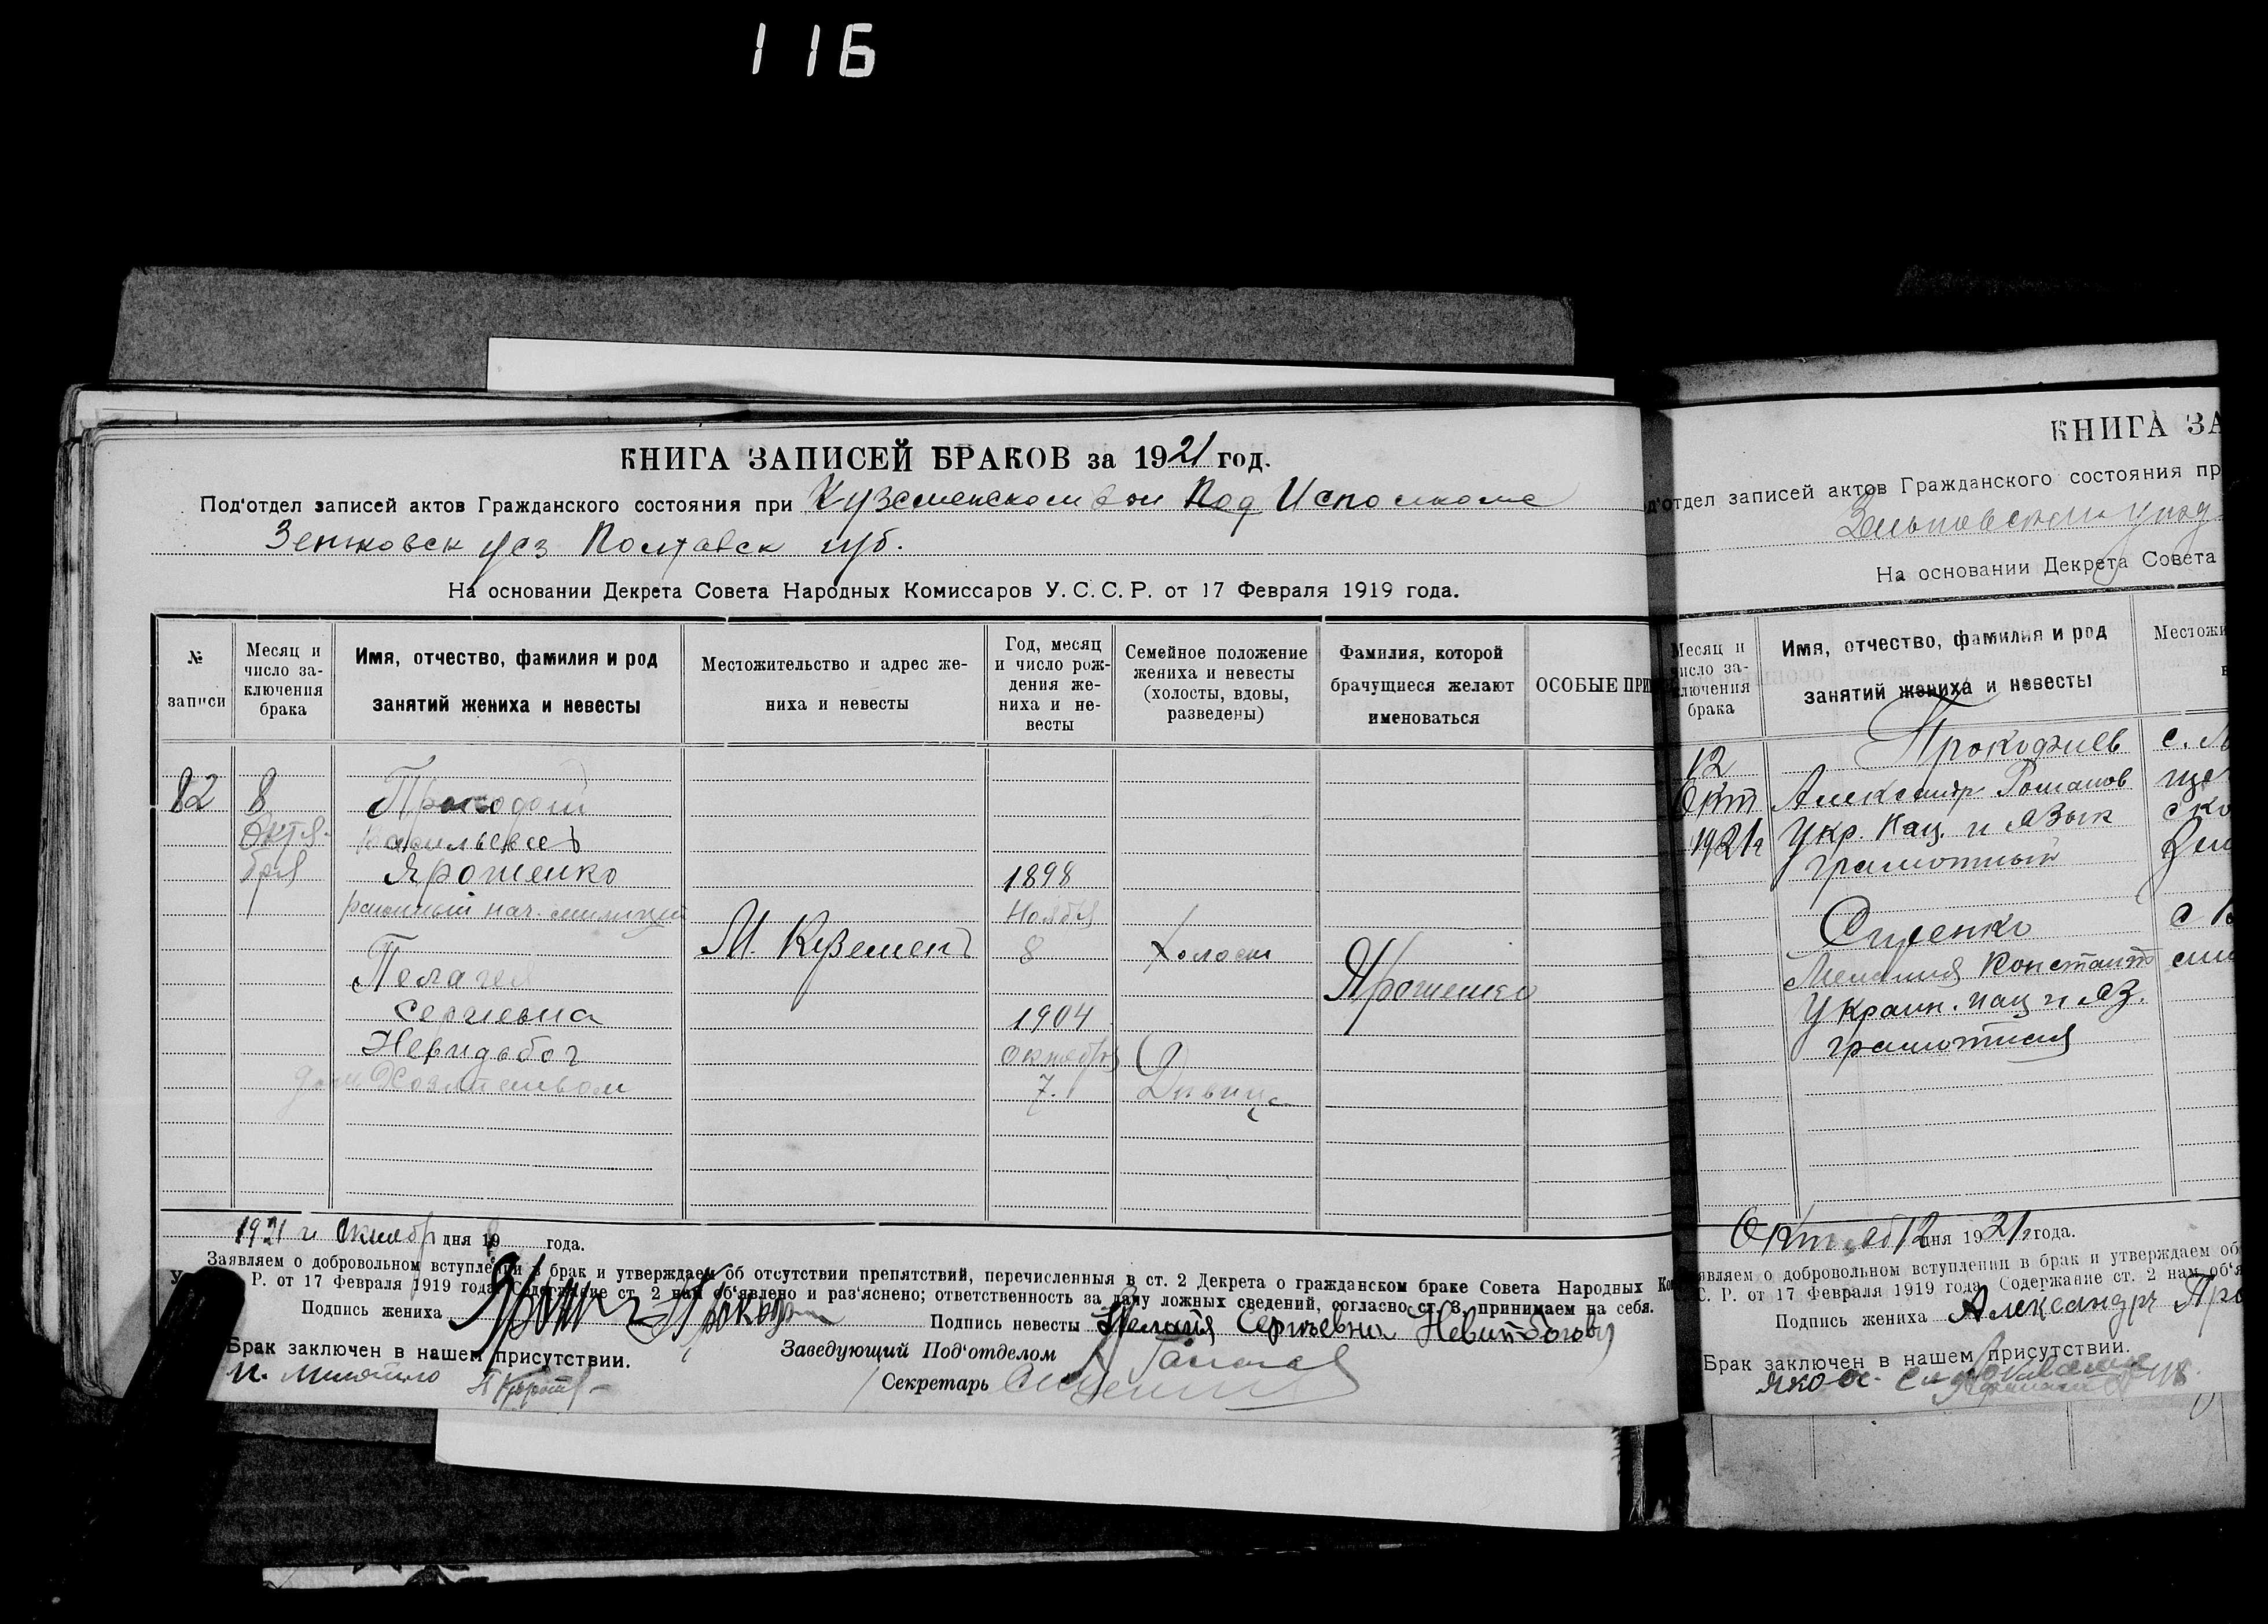 116
КНИГА ЗАПИСЕЙ БРАКОВ за 1921 год.
Под'отдел записей актов Гражданского состояния при Куземенском вол Под Исполкоме
Зеньковск уез Полтавск губ.
На основании Декрета Совета Народных Комиссаров У. С. С. Р. от 17 Февраля 1919 года.
№ записи
Месяц и число заключения брака
Имя, отчество, фамилия и род занятий жениха и невесты
Местожительство и адрес жениха и невесты
Год, месяц и число рождения жениха и невесты
Семейное положение жениха и невесты (холосты, вдовы, разведены)
Фамилия, которой брачущиеся желают именоваться
ОСОБЫЕ ПРИ
82
8
Октя-
бря
Прокофий
Васильевич
Ярошенко
районный нач. милиции
Пелагея
Сергиевна
Невидьбог
дом Хозяйством
М. Куземен
1898
Ноября
8
1904
Октября
7.
Холост
Дивица
Ярошенко
1921 г Октябр дня 19 года.
Заявляем о добровольном вступлении в брак и утверждаем об отсутствии препятствий, перечисленныя в ст. 2 Декрета о гражданском браке Совета Народных Ко
У Р. от 17 Февраля 1919 года. Содержание ст. 2 нам об'явлено и раз'яснено; ответственность за дачу ложных сведений, согласно ст. 3, принимаем на себя.
Подпись жениха Прокоф
Подпись невесты Пелагия Сергъевна
Брак заключен в нашем присутствии.
Заведующий Под'отделом
Секретарь
КНИГА ЗА
д'отдел записей актов Гражданского состояния пр
Зеньковском уезд
На основании Декрета Совета
Месяц и число заключения брака
Имя, отчество, фамилия и род занятий жениха и невесты
Местожи
12
Окт
1921г
Прокофиев
Александр Романов
Укр. нац. и язык
грамотный
Сиренко
Мелания Констант
Украин. нац и яз.
грамотная
Октяб 12 дня 1921г года.
аявляем о добровольном вступлении в брак и утверждаем об
С. Р. от 17 Февраля 1919 года. Содержание ст. 2 нам об'я
Подпись жениха Александръ Про
Брак заключен в нашем присутствии.